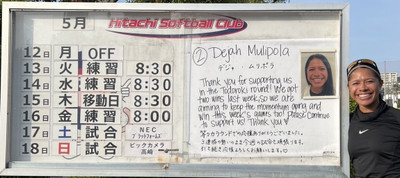 5月
Hitachi Softball Club
12日 月 OFF
13日 火 練習 8:30
14日 水 練習 8:30
15日 木 移動日 8:30
16日 金 練習 8:00
17日 土 試合 NEC プラットフォームズ
18日 日 試合 ビックカメラ高崎
② Dejah Mulipola
デジャ ムリポラ
Thank you for supporting us
in the Todoroki round! We got
two wins last week, so we are
aiming to keep the momentum going and
win this week's games too! Please continue
to support us! Thank you ♡